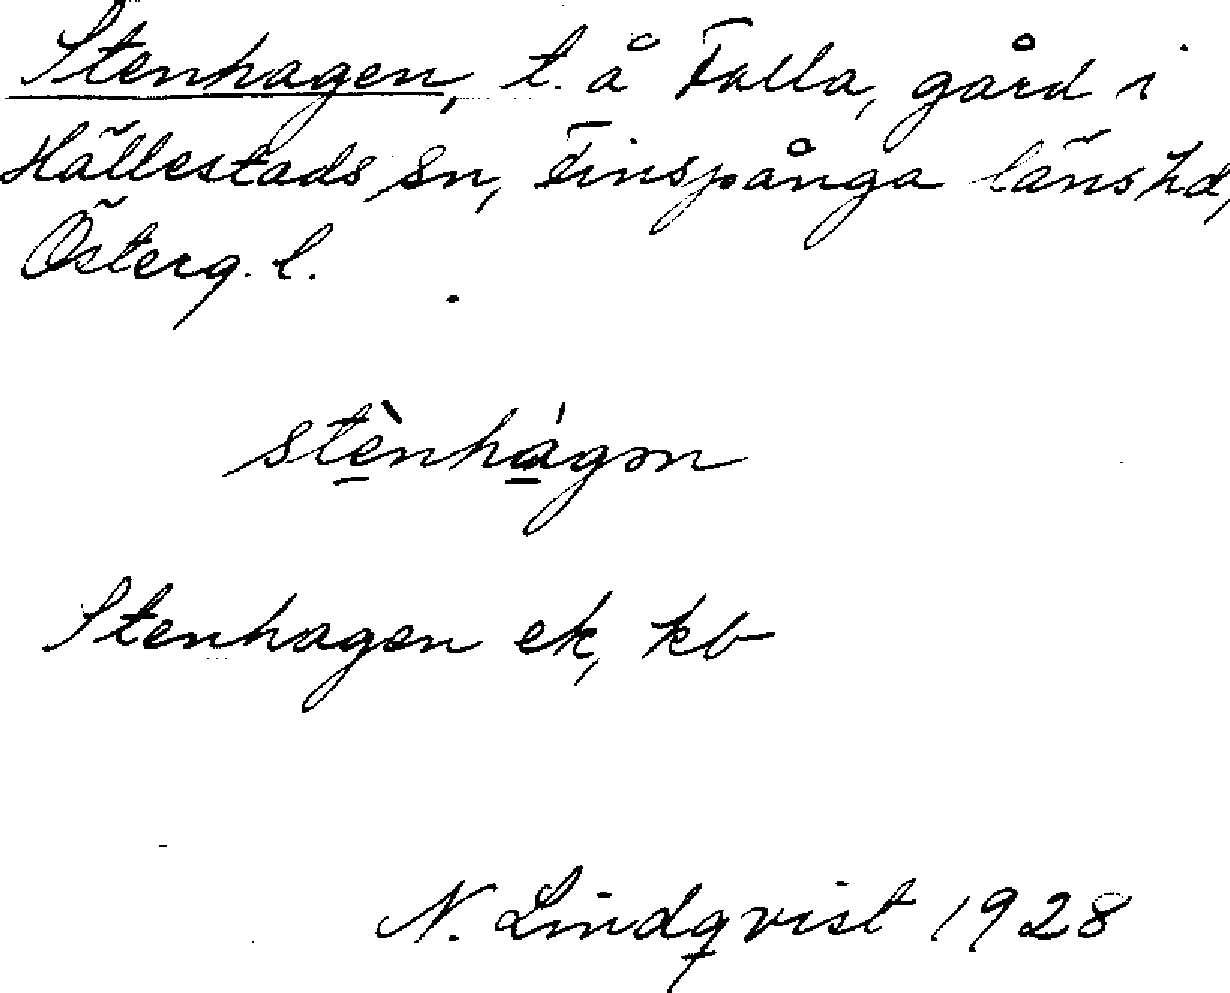 Stenhagen, t. å Falla, gård i
Hällestads sn, Finspånga läns hd,
Österg. l.
stènhágən
Stenhagen ek, kb
N. Lindqvist 1928